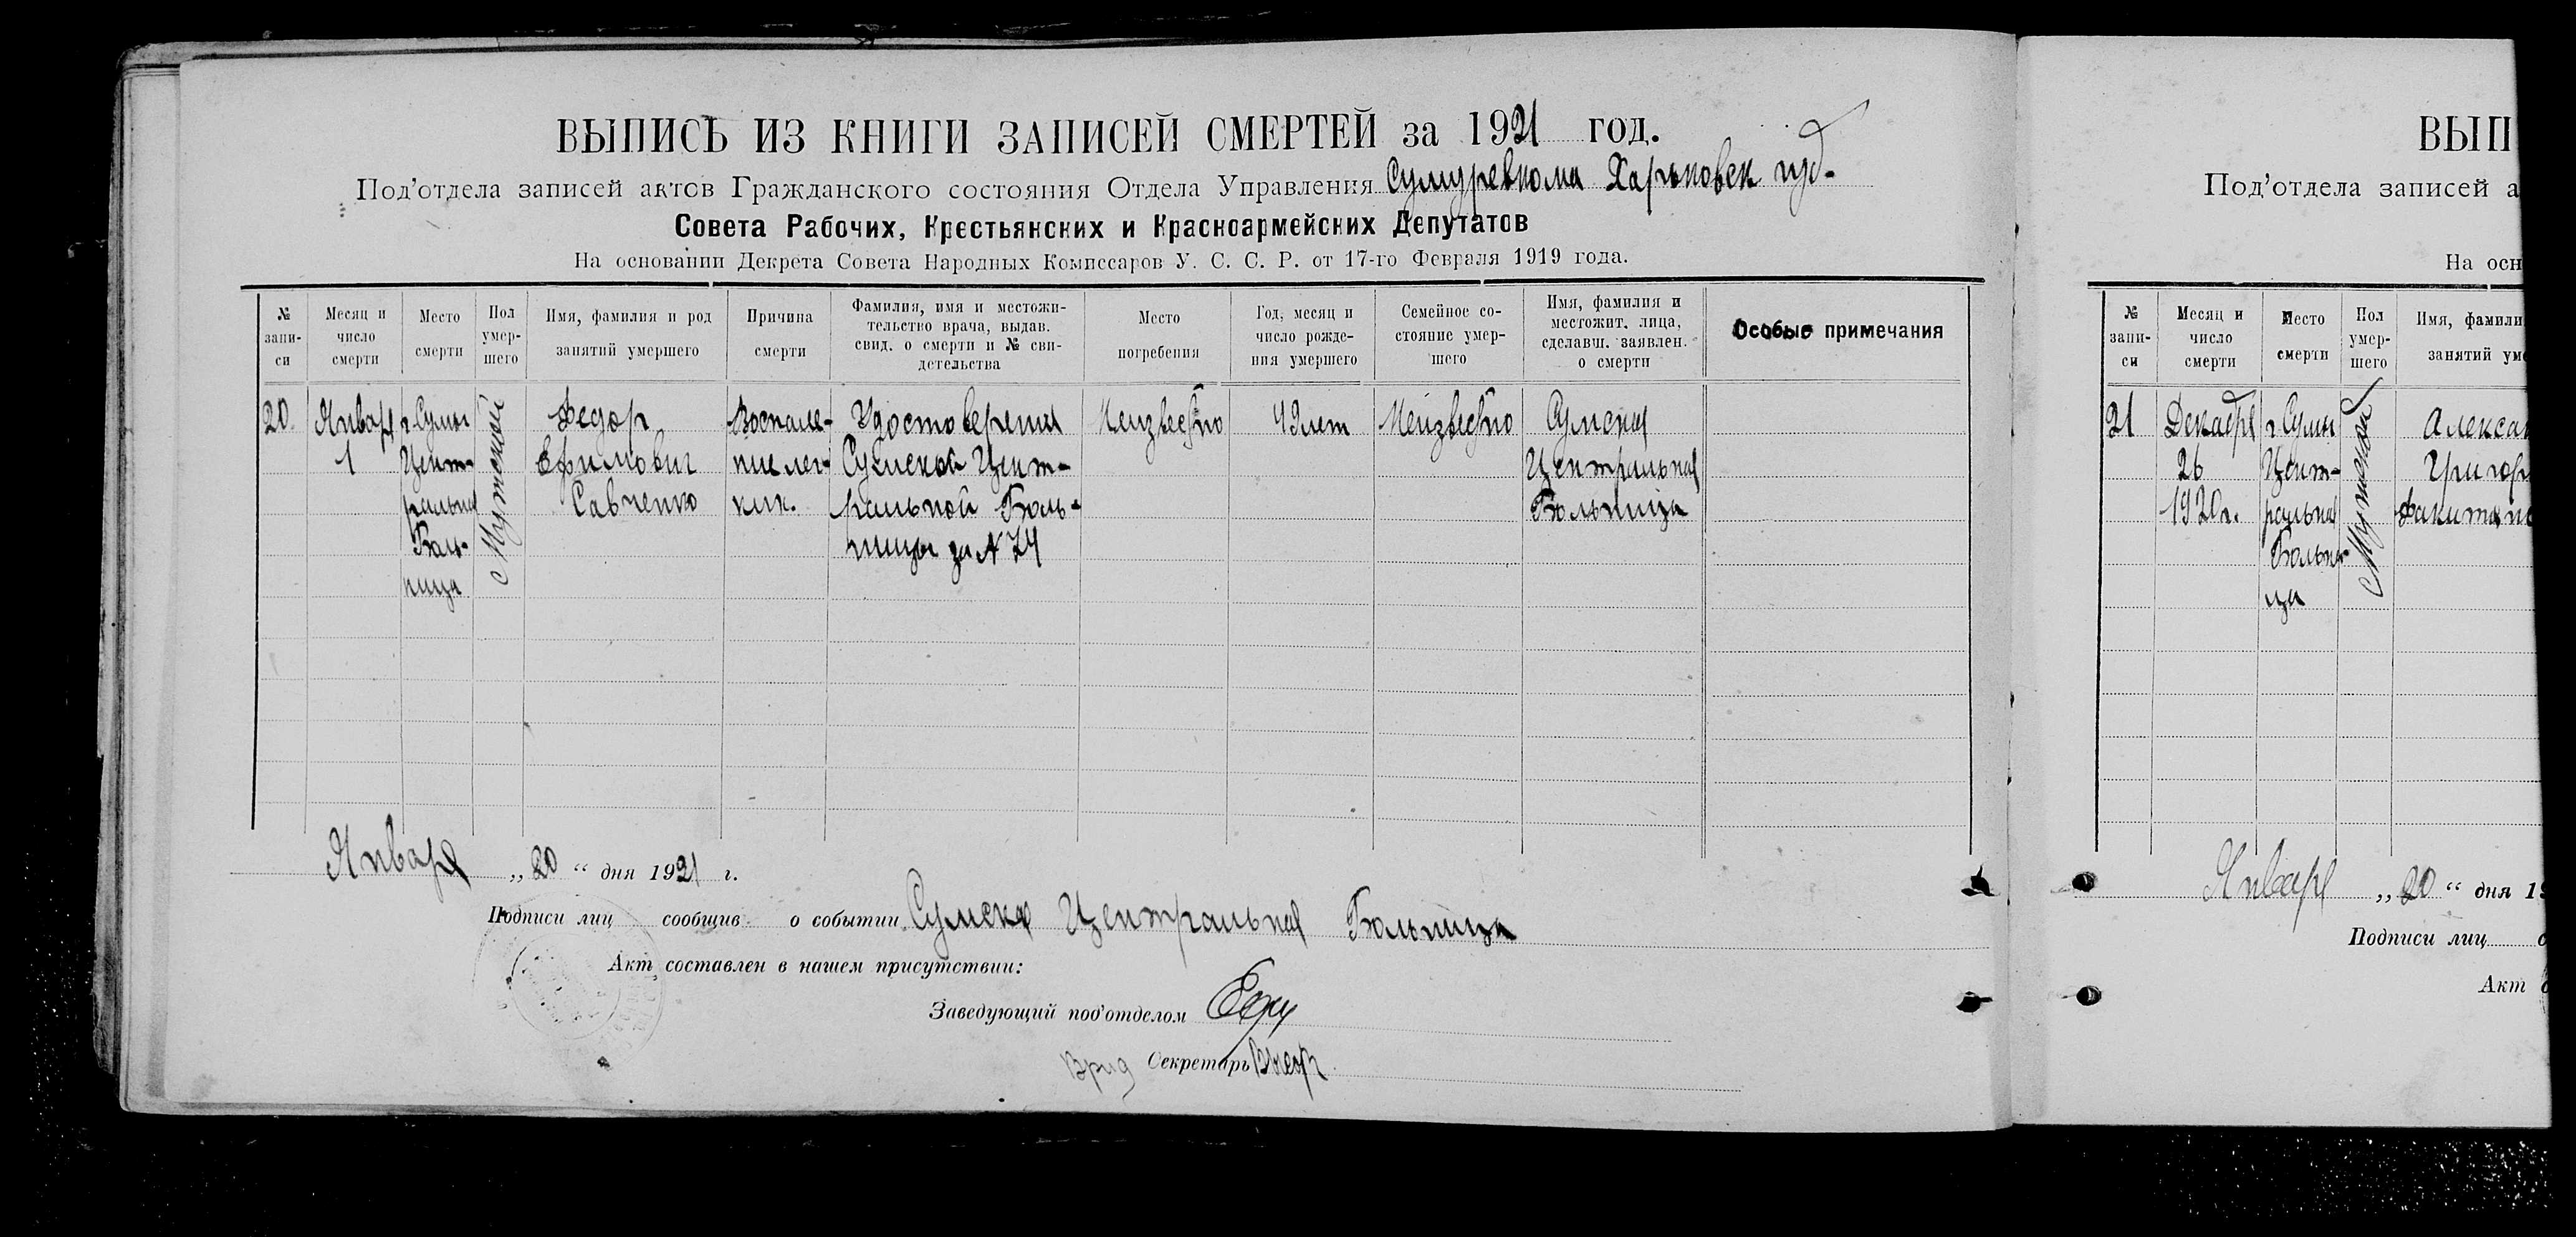 ВЫПИСЬ ИЗ КНИГИ ЗАПИСЕЙ СМЕРТЕЙ за 1921 год.
Под'отдела записей актов Гражданского состояния Отдела Управления Сумуревкома Харьковск губ.
Совета Рабочих, Крестьянских и Красноармейских Депутатов
На основании Декрета Совета Народных Комиссаров У. С. С. Р. от 17-го Февраля 1919 года.
№ запи-
си
Месяц и
число
смерти
Место
смерти
Пол
умер-
шего
Имя, фамилия и род
занятий умершего
Причина
смерти
Фамилия, имя и местожи-
тельство врача, выдав.
свид. о смерти и № сви-
детельства
Место
погребения
Год, месяц и
число рожде-
ния умершего
Семейное со-
стояние умер-
шего
Имя, фамилия и
местожит. лица,
сделавш. заявлен.
о смерти
Особые примечания
20
Января
1
г. Сумы
Цент-
ральная
Боль-
ница
Мужской
Федор
Ефимович
Савченко
Воспале-
ние лег-
ких.
Удостоверения
Сумской Цент-
ральной Боль-
ницы за № 74
Неизвестно
49 лет
Неизвестно
Сумская
Центральная
Больница
Января „20“ дня 1921 г.
Подписи лиц сообщив. о событии Сумская Центральная Больница
Акт составлен в нашем присутствии:
Заведующий под'отделом
Врид Секретарь
ВЫП
Под'отдела записей а
На осн
№
запи-
си
Месяц и
число
смерти
Место
смерти
Пол
умер-
шего
Имя, фамили
занятий уме
21
Декабря
26
1920 г.
г. Сумы
Цент-
ральная
Больни-
ца
Мужской
Алексан
Григор
Января „20“ дня 19
Подписи лиц
Акт